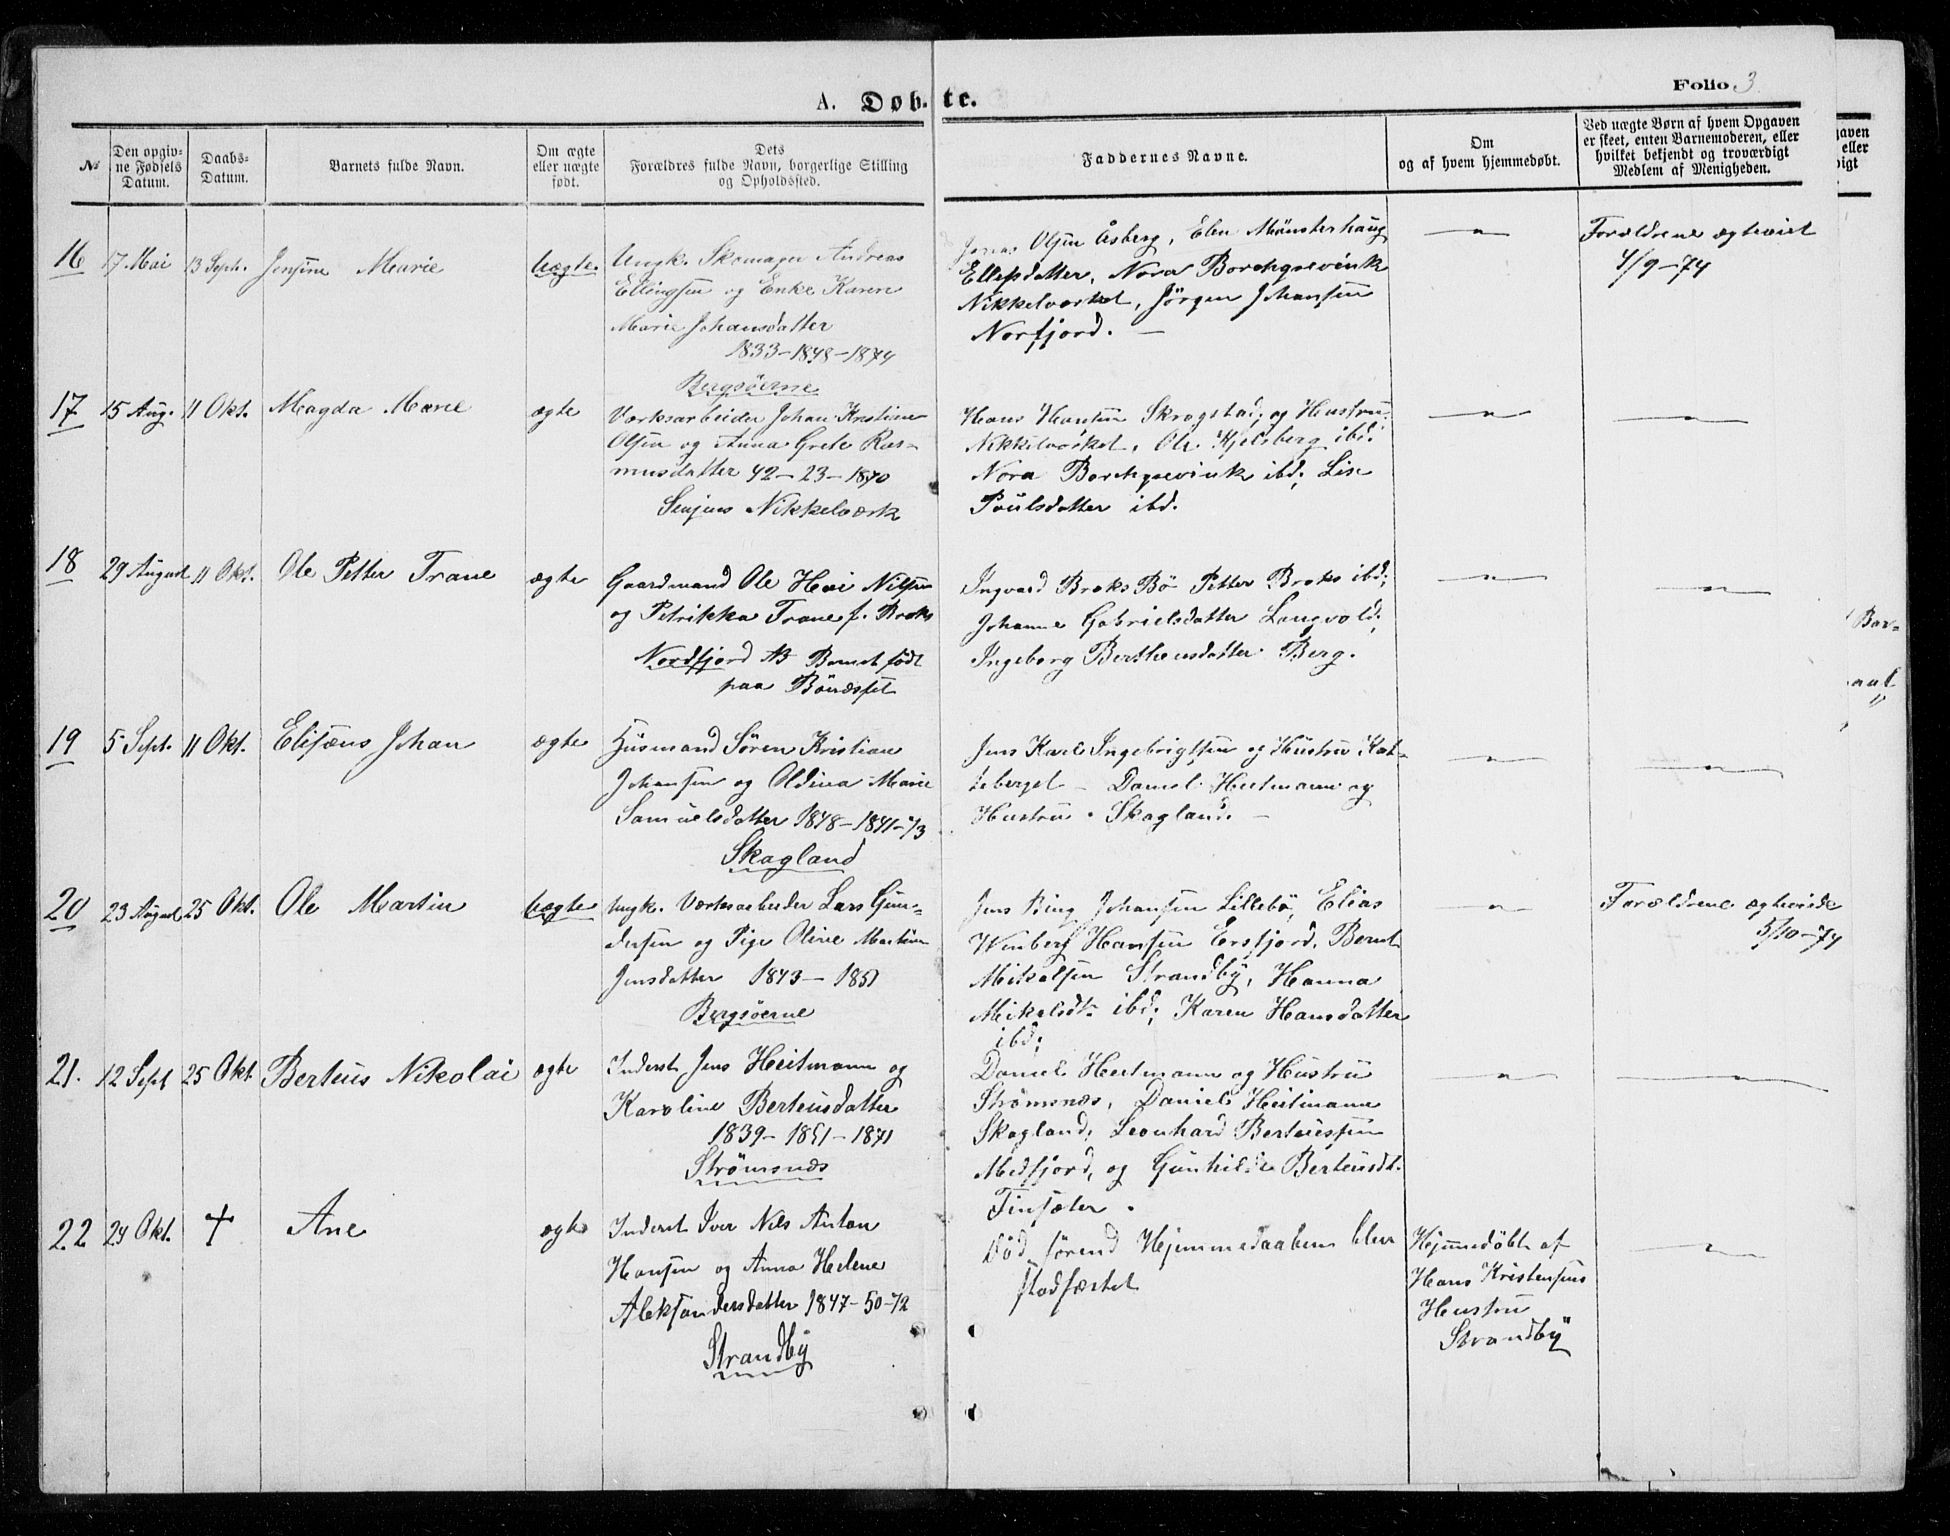 Folio 3
A. Døbte.
№
Den opgivne Fødsels Datum.
Daabs-Datum.
Barnets fulde Navn.
Om ægte eller uægte født.
Dets Forældres fulde Navn, borgerlige Stilling og Opholdssted.
Faddernes Navne.
Om og af hvem hjemmedøbt.
Ved uægte Børn af hvem Opgaven er skeet, enten Barnemoderen, eller hvilket bekjendt og troværdigt Medlem af Menigheden.
16 17 Mai 13 Septr. Jensine Marie Uægte.
Ungk. Skomager Andreas
Ellingsen og Enke Karen
Marie Johansdatter
1833-1848-1874
Bergsøerne
Jonas Olsen Åsberg, Elen Mønsterhaug
Ellefsdatter, Nora Borchgrevink
Nikkelværket, Jörgen Johansen
Norfjord. —
— " —
Forældrene ægteviet
4/9-74
17 15 Aug. 11 Okt. Magda Marie ægte
Værksarbeider Johan Kristian
Olsen og Anna Grete Ras-
musdatter 42-23-1870
Senjens Nikkelværk
Hans Hansen Skrogstad, og Hustru
Nikkelværket, Ole Kjelsberg ibd.
Nora Borchgrevink ibd; Lise
Poulsdatter ibd.
— " —
— " —
18 29 August 11 Okt. Ole Petter Trane ægte
Gaardmand Ole Hoi Nilsen
og Petrikka Trane f. Broks
Nordfjord NB Barnet født
paa Bönesset
Ingvard Broks Bö Petter Broks ibd;
Johanne Gabrielsdatter Langvold;
Ingeborg Berthensdatter Berg.
— " —
— " —
19 5 Sept. 11 Okt. Elisæus Johan ægte
Husmand Søren Kristian
Johansen og Oldina Marie
Samuelsdatter 1848-1841-73
Skagland
Jens Karl Ingebrigtsen og Hustru Kat-
teberget — Daniel Heitmann og
Hustru · Skagland. —
— " —
— " —
20 23 August 25 Okt. Ole Martin Uægte
Ungk. Værksarbeider Lars Gun-
dersen og Pige Oline Martine
Jensdatter 1843-1851
Bergsöerne
Jens Bing Johansen Lillebö, Elias
Winberg Hansen Ersfjord, Bernt
Mikalsen Strandby, Hanna
Mikalsdt. ibd; Karen Hansdatter
ibd;
— " —
Forældrene ægteviede
5/10-74
21. 12 Sept 25 Okt. Berteus Nikolai ægte
Inderst Jens Heitmann og
Karoline Berteusdatter
1839-1851-1871
Strømsnæs
Daniel Heitmann og Hustru
Strømsnæs, Daniel Heitmann
Skagland, Leonhard Berteussen
Medfjord, og Gunhilda Berteusdt.
Finsæter.
— " —
— " —
22 24 Okt. † Ane ægte
Inderst Iver Nils Anton
Hansen og Anna Helene
Aleksandersdatter 1847-50-72
Strandby
Död förend Hjemmedaaben blev
stadfæstet
Hjemmedöbt af
Hans Kristensens
Hustru
Strandby
— " —